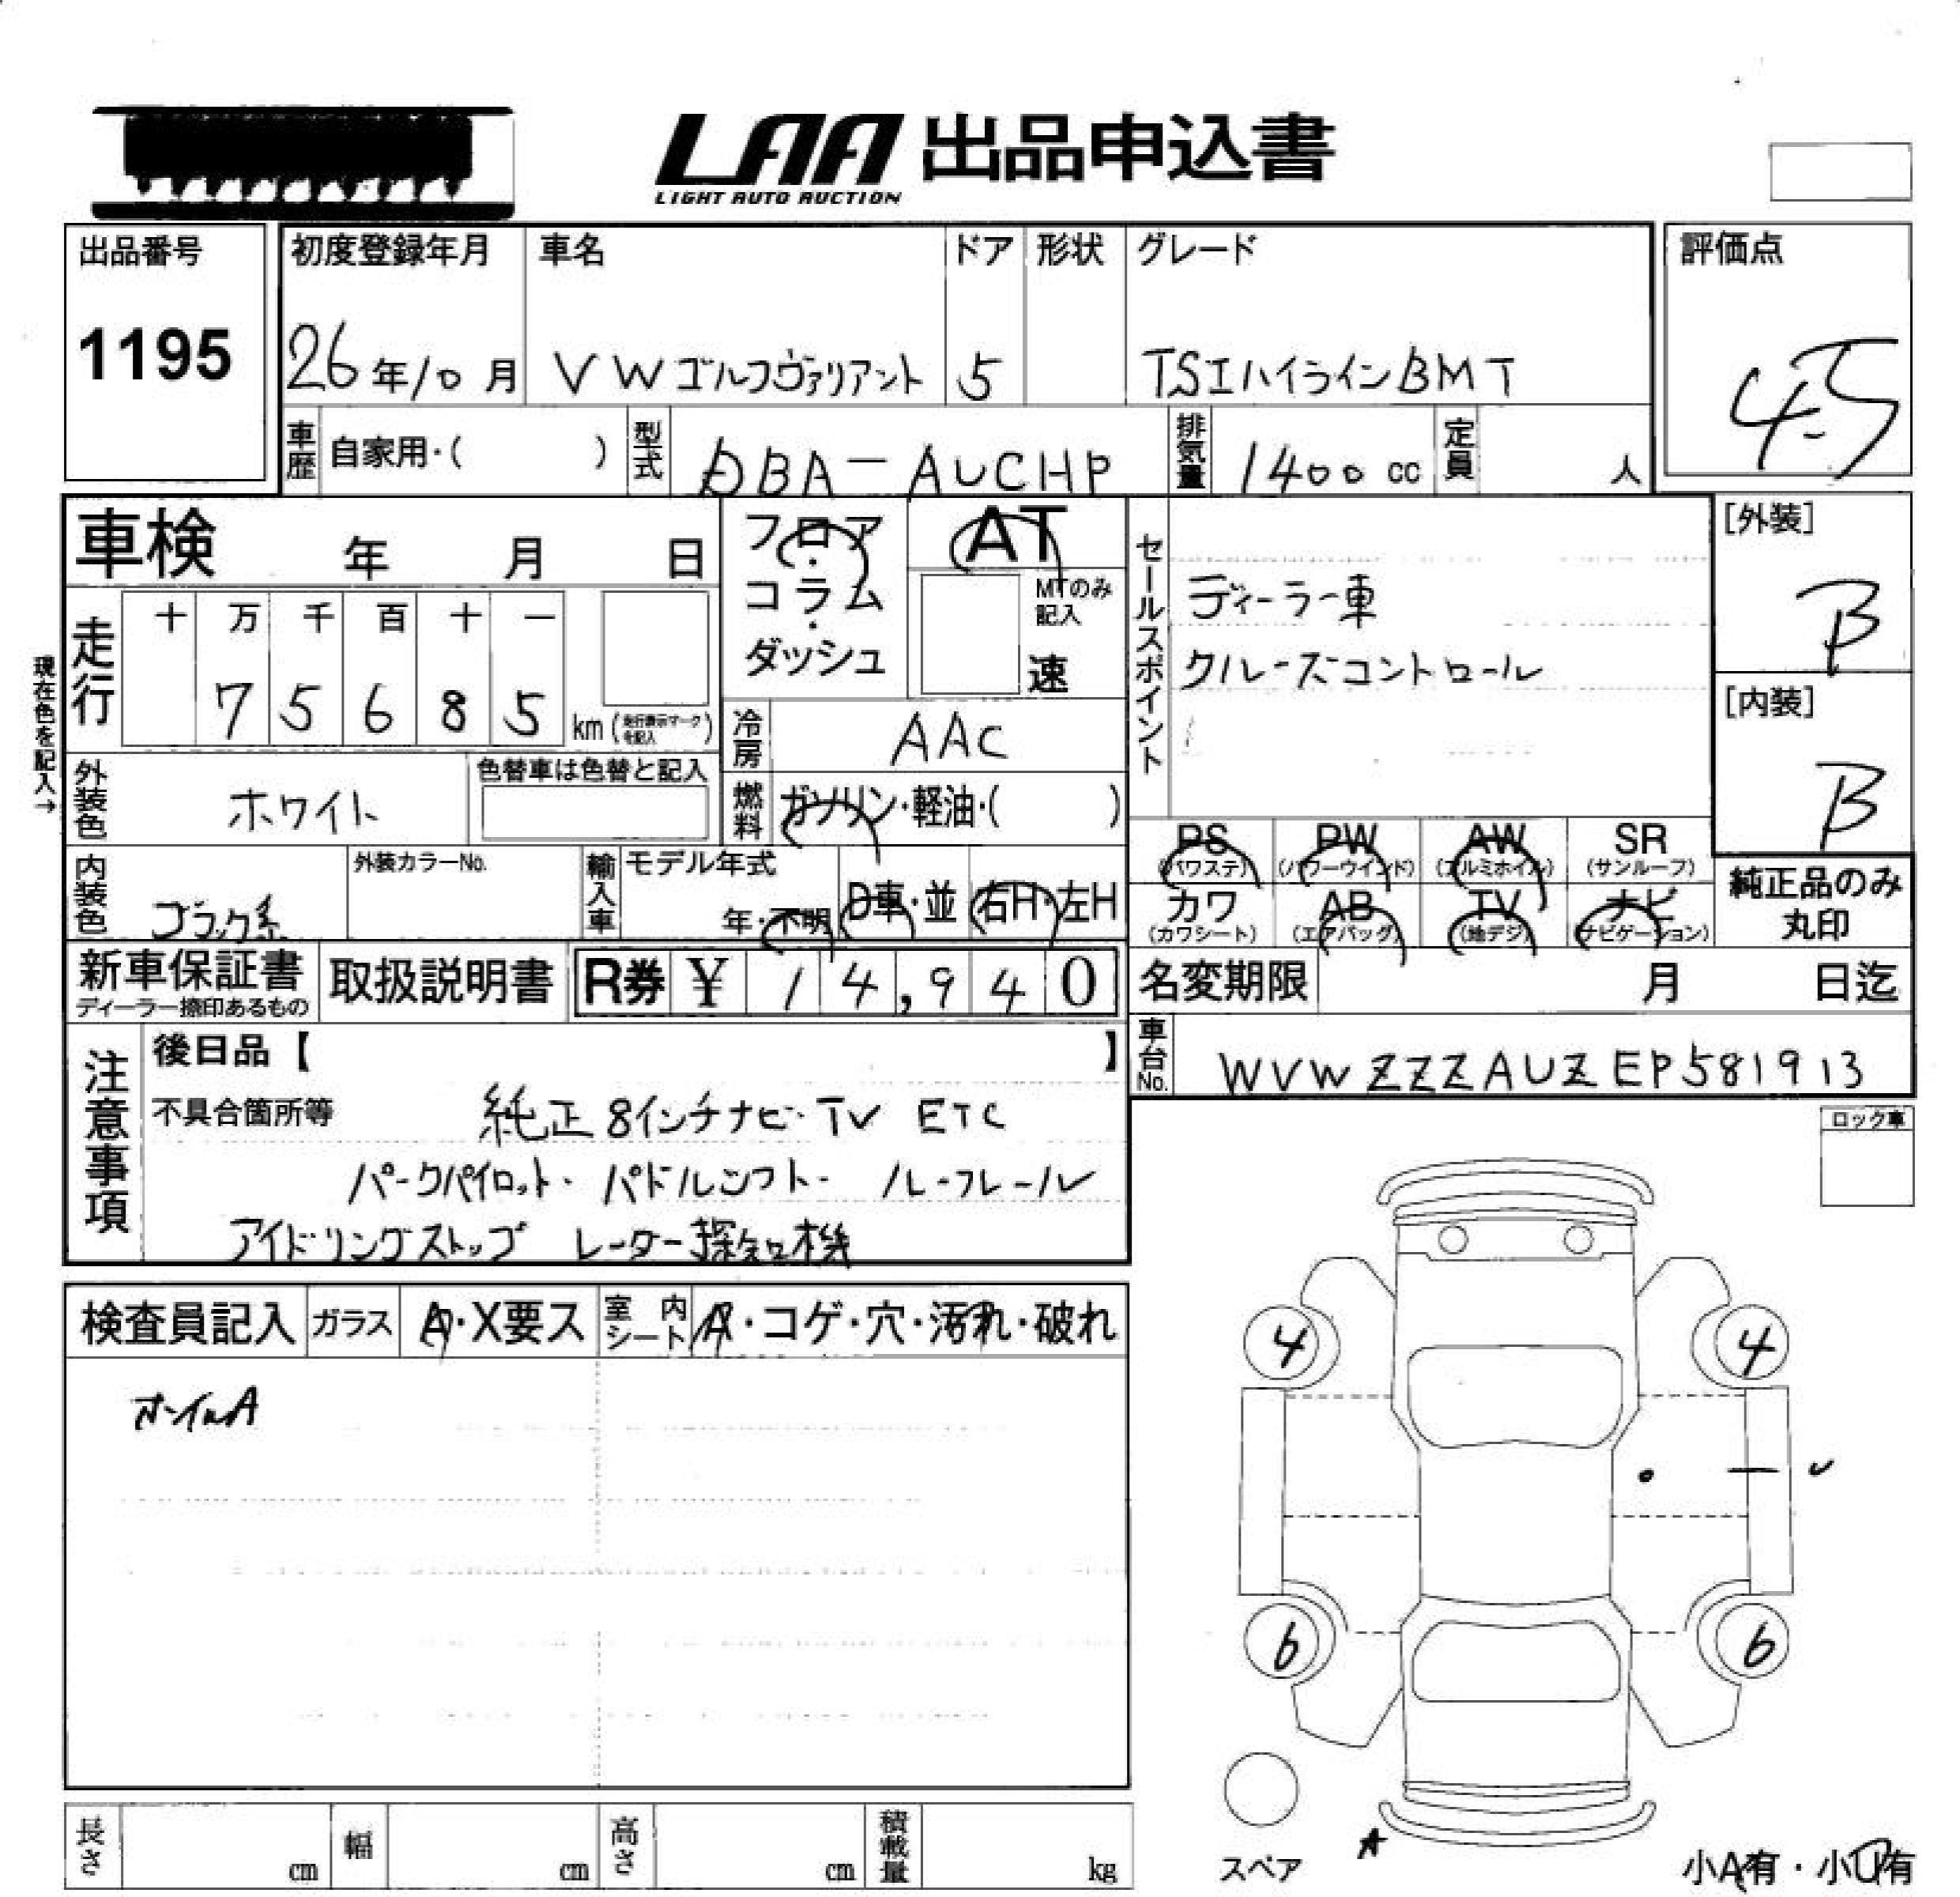 LAA 出品申込書
LIGHT AUTO AUCTION
出品番号 初度登録年月 車名 ドア 形状 グレード 評価点
1195 26年10月 VWゴルフヴァリアント 5 TSIハイラインBMT 4.5
車歴 自家用・( ) 型式 DBA-AUCHP 排気量 1400cc 定員 人
車検 年 月 日
フロア・コラム・ダッシュ
AT
MTのみ記入
速
セールスポイント
ディーラー車
クルーズコントロール
[外装]
B
[内装]
B
現在色を記入→
走行 十 万 千 百 十 一
7 5 6 8 5 km (走行表示マークを記入)
冷房 AAC
外装色 ホワイト 色替車は色替と記入
燃料 ガソリン・軽油・( )
内装色 ブラック系 外装カラーNo. 輸入車 モデル年式 年・不明 D車・並 右H・左H
PS (パワステ) PW (パワーウインド) AW (アルミホイル) SR (サンルーフ)
カワ (カワシート) AB (エアバッグ) TV (地デジ) ナビ (ナビゲーション)
純正品のみ丸印
新車保証書 ディーラー捺印あるもの 取扱説明書 R券 ¥ 14,940
名変期限 月 日迄
車台No. WVWZZZAUZEP581913
注意事項
後日品【 】
不具合箇所等 純正8インチナビ・TV ETC
パークパイロット・ パドルシフト・ ルーフレール
アイドリングストップ レーダー探知機
ロック車
検査員記入 ガラス A・X要ス 室内シート A・コゲ・穴・汚れ・破れ
ホイルA
4 4
6 6
A
スペア
小A有・小U有
長さ cm 幅 cm 高さ cm 積載量 kg